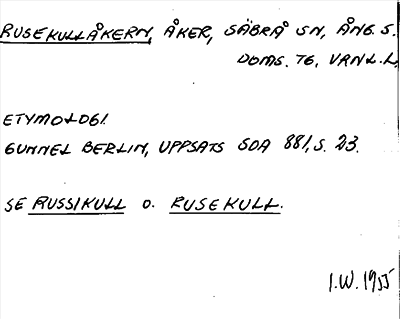 RUSEKULLÅKERN, ÅKER, SÄBRÅ SN, ÅNG. S.
DOMS. TG, VRNL.L.
ETYMOLOGI.
GUNNEL BERLIN, UPPSATS SOA 881, S. 23.
SE RUSSIKULL O. RUSEKULL.
I.W. 1955